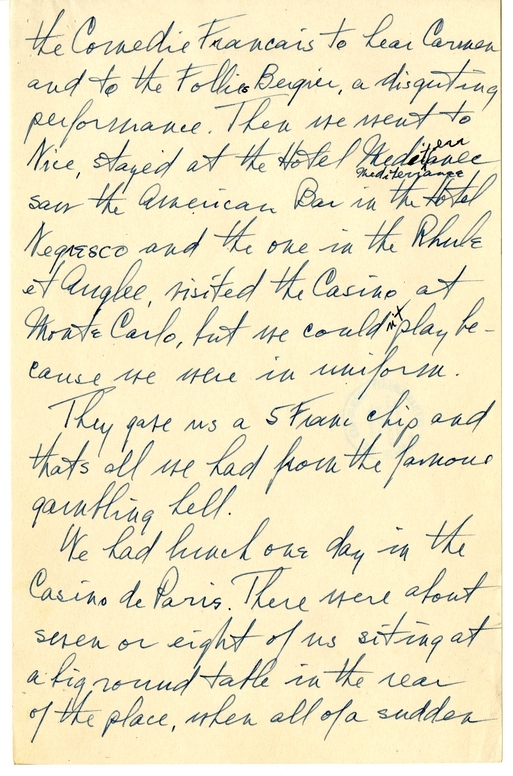 the Comedie Francais to hear Carmen
and to the Follies Bergier, a disguting
performance. Then we went to
Nice, stayed at the Hotel Mediterranee
mediterranee
saw the American Bar in the Hotel
Negresco and the one in the Rhule
et Anglee, visited the Casino at
Monte Carlo, but we couldn't play be-
cause we were in uniform.
They gave us a 5 Franc chip and
thats all we had from the famous
gambling hell.
We had lunch one day in the
Casino de Paris. There were about
seven or eight of us siting at
a big round table in the rear
of the place, when all of a sudden